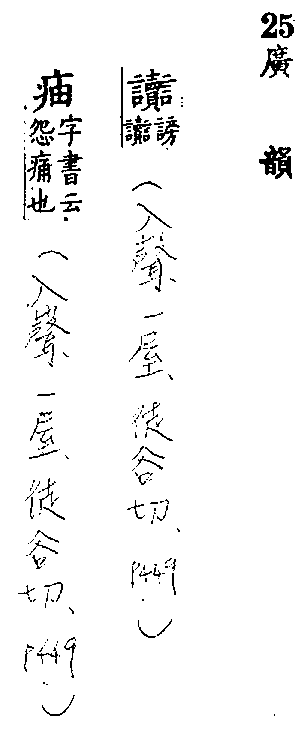 25
廣韻
讟
謗
讟
（入聲、一屋、徒谷切、P449.）
㾄
字書云
怨痛也
（入聲、一屋、徒谷切、P449.）